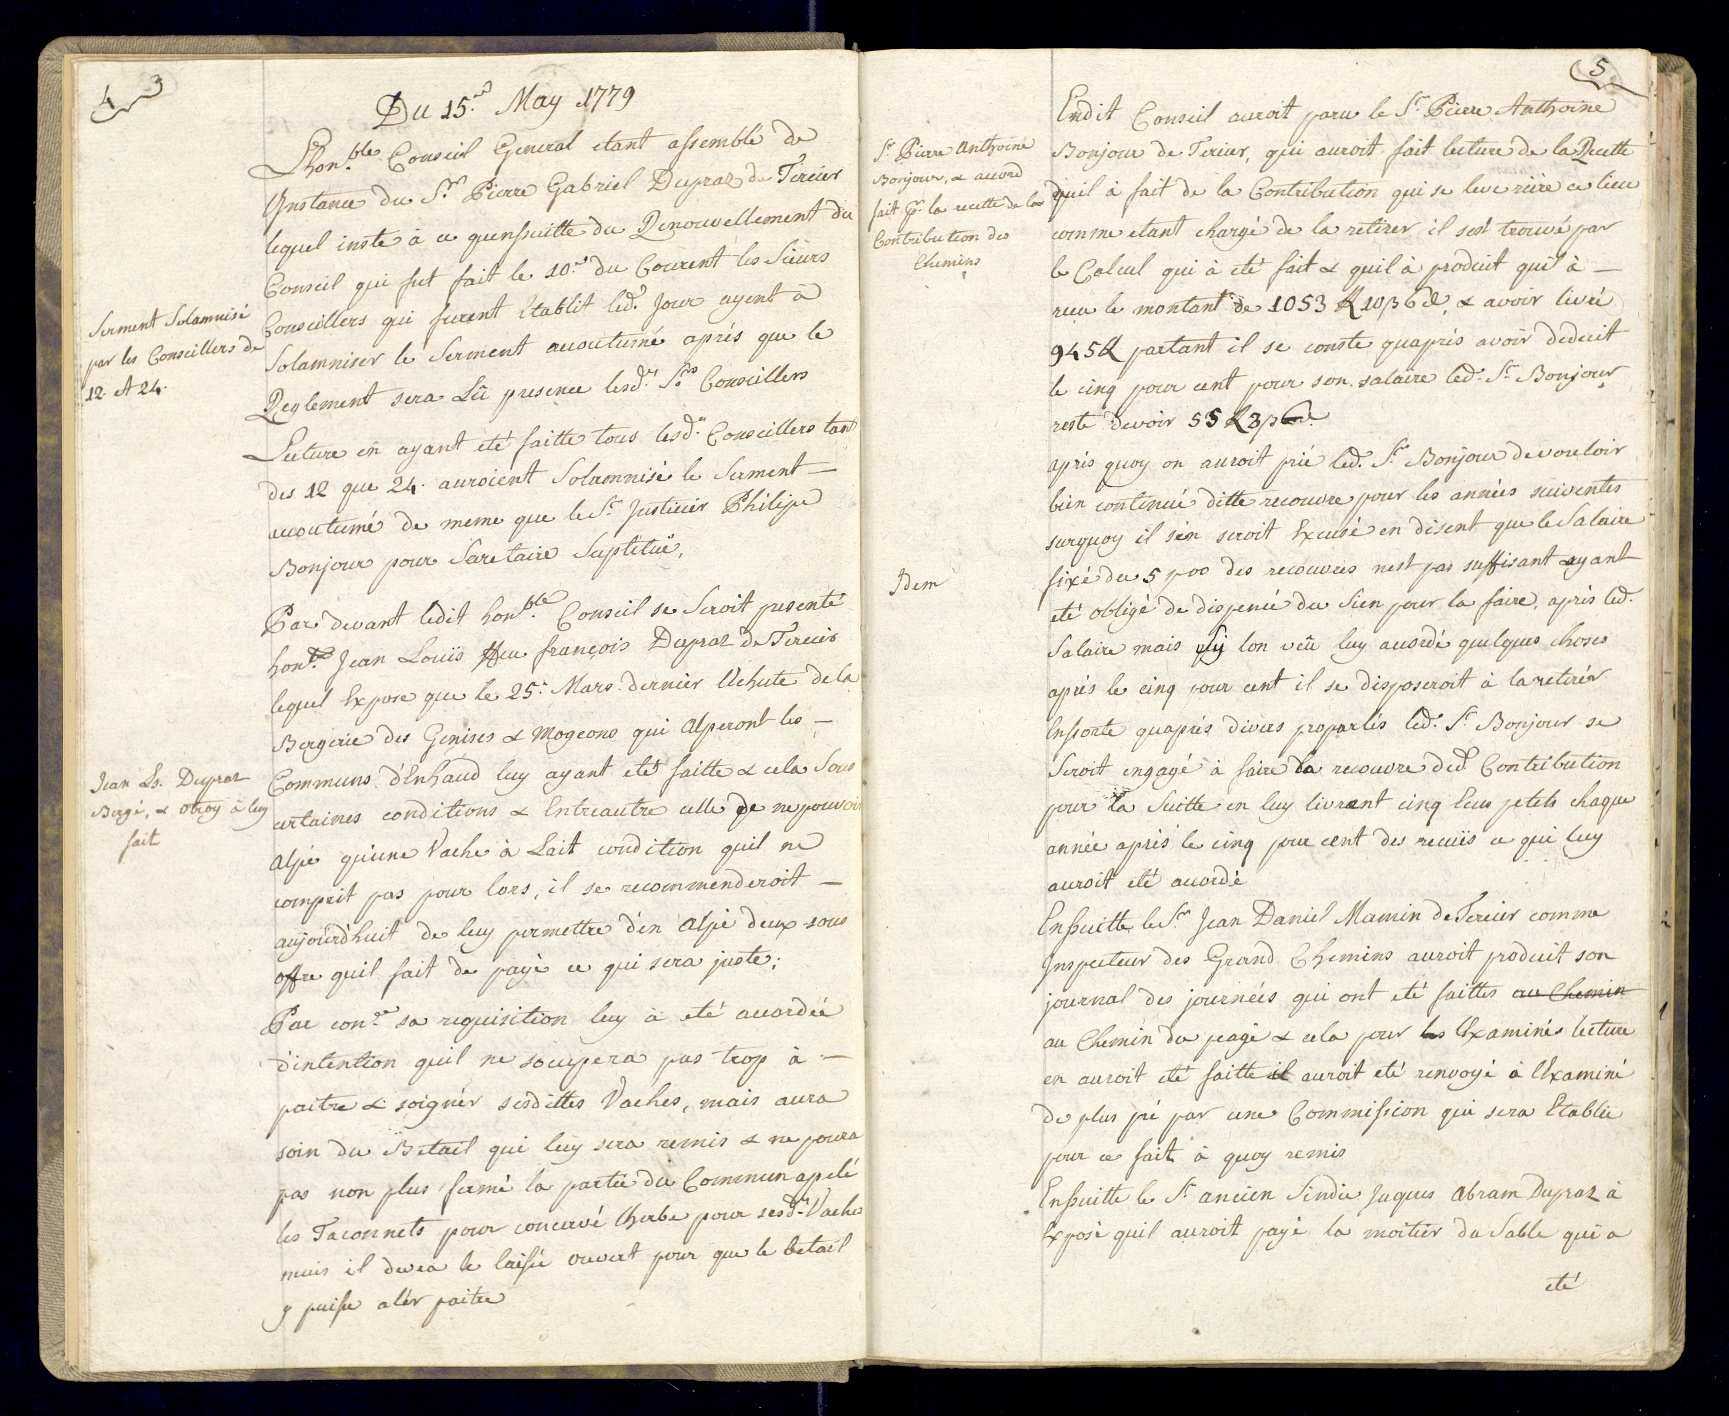 4 3
Du 15.e May 1779
Lhon.ble Conseil General etant assemblé de
Linstance du S.r Pierre Gabriel Dupraz de Tercier
lequel inste à ce quensuitte du Renouvellement du
Conseil qui fut fait le 10.e du Courent les Sieurs
Serment Solamnisé
par les Conseillers de
12. et 24.
Conseillers qui furent Etablit led.t Jour ayent à
Solamniser le Serment acoutumé aprés que le
Reglement sera Lû presence lesd.ts S.rs Conseillers
Lecture en ayant eté faitte tous lesd.ts Conseillers tant
des 12 que 24. auroient Solamnisé le Serment —
acoutumé de meme que le S.r Justicier Philipe
Bonjour pour Secretaire Suptitué,
Par devant ledit hon.ble Conseil se Seroit presenté
hon.ble Jean Louïs ffeu françois Dupraz de Tercier
lequel Expose que le 25.e Mars dernier l'Echute de la
Bergerie des Genises & Mogeons qui Alperont les —
Jean Ls. Dupraz
Bergé, & otroy à luy
fait
Communs d'Enhaud luy ayant eté faitte & cela Sous
certaines conditions & Entreautre celle de ne pouvoir
Alpé qu'une Vache à Lait condition quil ne
comprit pas pour lors, il se recommenderoit —
aujourd'huit de luy permettre d'en Alpé deux sous
offre quil fait de payé ce qui sera juste;
Par con.ce sa requisition luy à eté accordée
d'intention quil ne socupera pas trop à —
paitre & soignér sesdittes Vaches, mais aura
soin du Betail qui luy sera remis & ne poura
pas non plus fermé la partie du Commun apelé
les Taconnets pour concervé lherbe pour sesd.tes Vaches
mais il devra le laissé ouvert pour que le betail
y puisse alér paitre
5
Endit Conseil auroit paru le S.r Pierre Anthoine
S.r Pierre Anthoine
Bonjour, & accord
fait p.r la recette de la
Contribution des
Chemins
Bonjour de Tercier, qui auroit fait lecture de la Recette
quil à fait de la Contribution qui se leve riére ce lieu
comme etant chargé de la retirer il sest trouvé par
le Calcul qui à eté fait & quil à produit quil à —
reçu le montant de 1053 L 10 β 6 d, & avoir livré
945 L partant il se conste quaprés avoir deduit
le cinq pour cent pour son salaire led. S.r Bonjour
reste devoir 55 L 3 β 6 d.
aprés quoy on auroit prié led. S.r Bonjour de vouloir
bien continué ditte recouvre pour les années suiventes
surquoy il sén seroit Excusé en disent que le Salaire
Idem
fixé du 5 p00 des recouvres nest pas suffisant ayant
eté obligé de dispensé du Sien pour la faire, aprés led.
Salaire mais sy lon veû luy accordé quelques choses
aprés le cinq pour cent il se disposeroit à la retirér
Ensorte quaprés divers proparlés led. S.r Bonjour se
Seroit engagé à faire la recouvre dud. Contribution
pour la Suitte en luy livrent cinq Ecus petits chaque
année aprés le cinq pour cent des recuis ce qui luy
auroit eté accordé
Ensuitte le S.r Jean Daniel Mamin de Tercier comme
Inspecteur des Grand Chemins auroit produit son
journal des journées qui ont eté faittes au Chemin
au Chemin du peage & cela pour les Examinés lecture
en auroit eté faitte il auroit eté renvoyé à Examiné
de plus pré par une Commission qui sera Etablie
pour ce fait à quoy remis
Ensuitte le S.r ancien Sindic Jaques Abram Dupraz à
Exposé quil auroit payé la moitiér du Sable qui a
eté